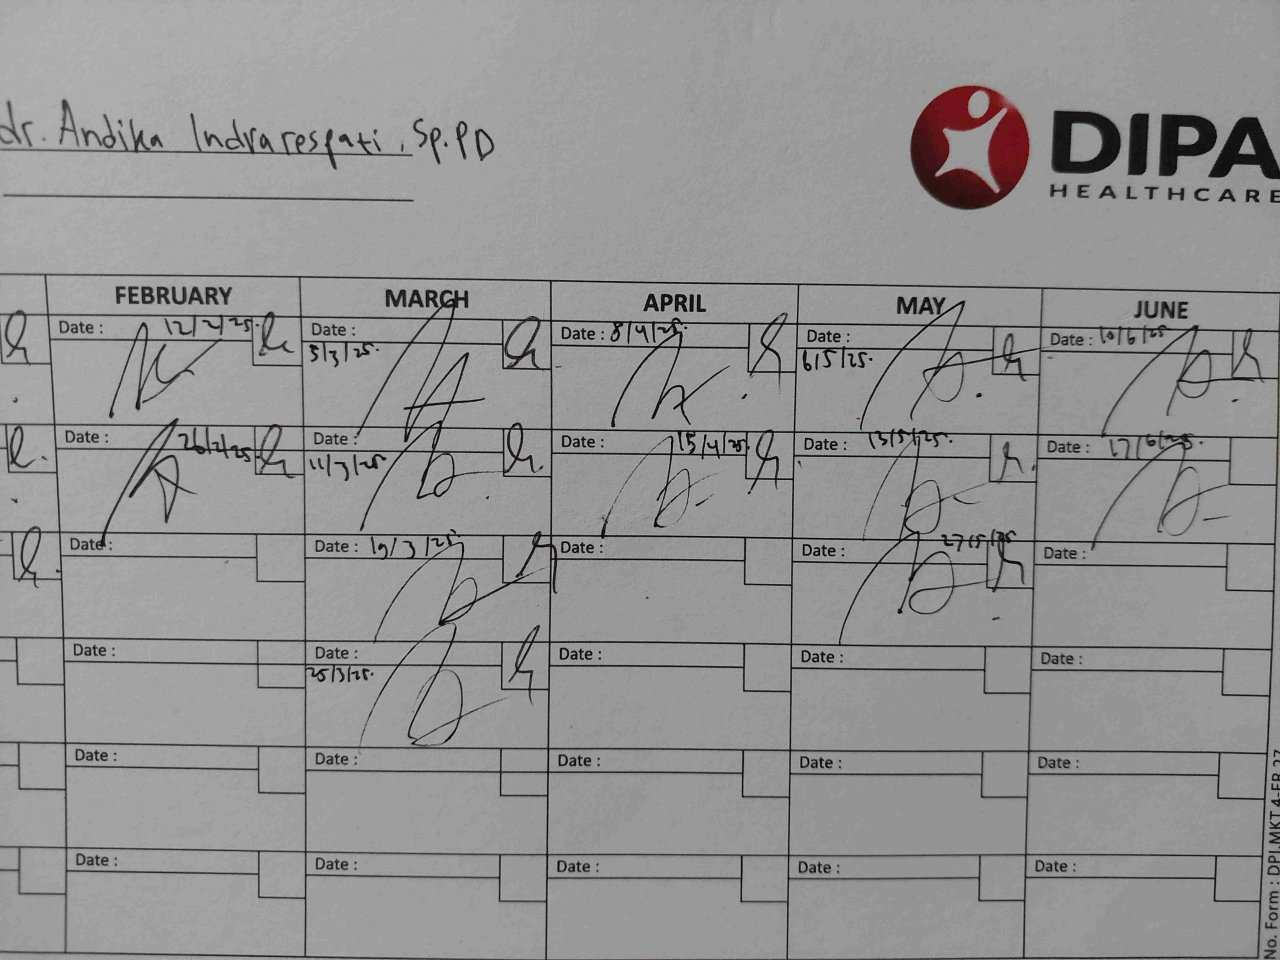 dr. Andika Indrarespati, Sp.PD
DIPA
HEALTHCARE
FEBRUARY MARCH APRIL MAY JUNE
Date : 12/2/25. Date : 5/3/25. Date : 8/4/25. Date : 6/5/25. Date : 10/6/25
Date : 26/2/25. Date : 11/3/25. Date : 15/4/25. Date : 13/5/25. Date : 17/6/25.
Date : Date : 19/3/25. Date : Date : 27/5/25 Date :
Date : Date : 25/3/25. Date : Date : Date :
Date : Date : Date : Date : Date :
Date : Date : Date : Date : Date :
No. Form : DPI.MKT 4-FR.27